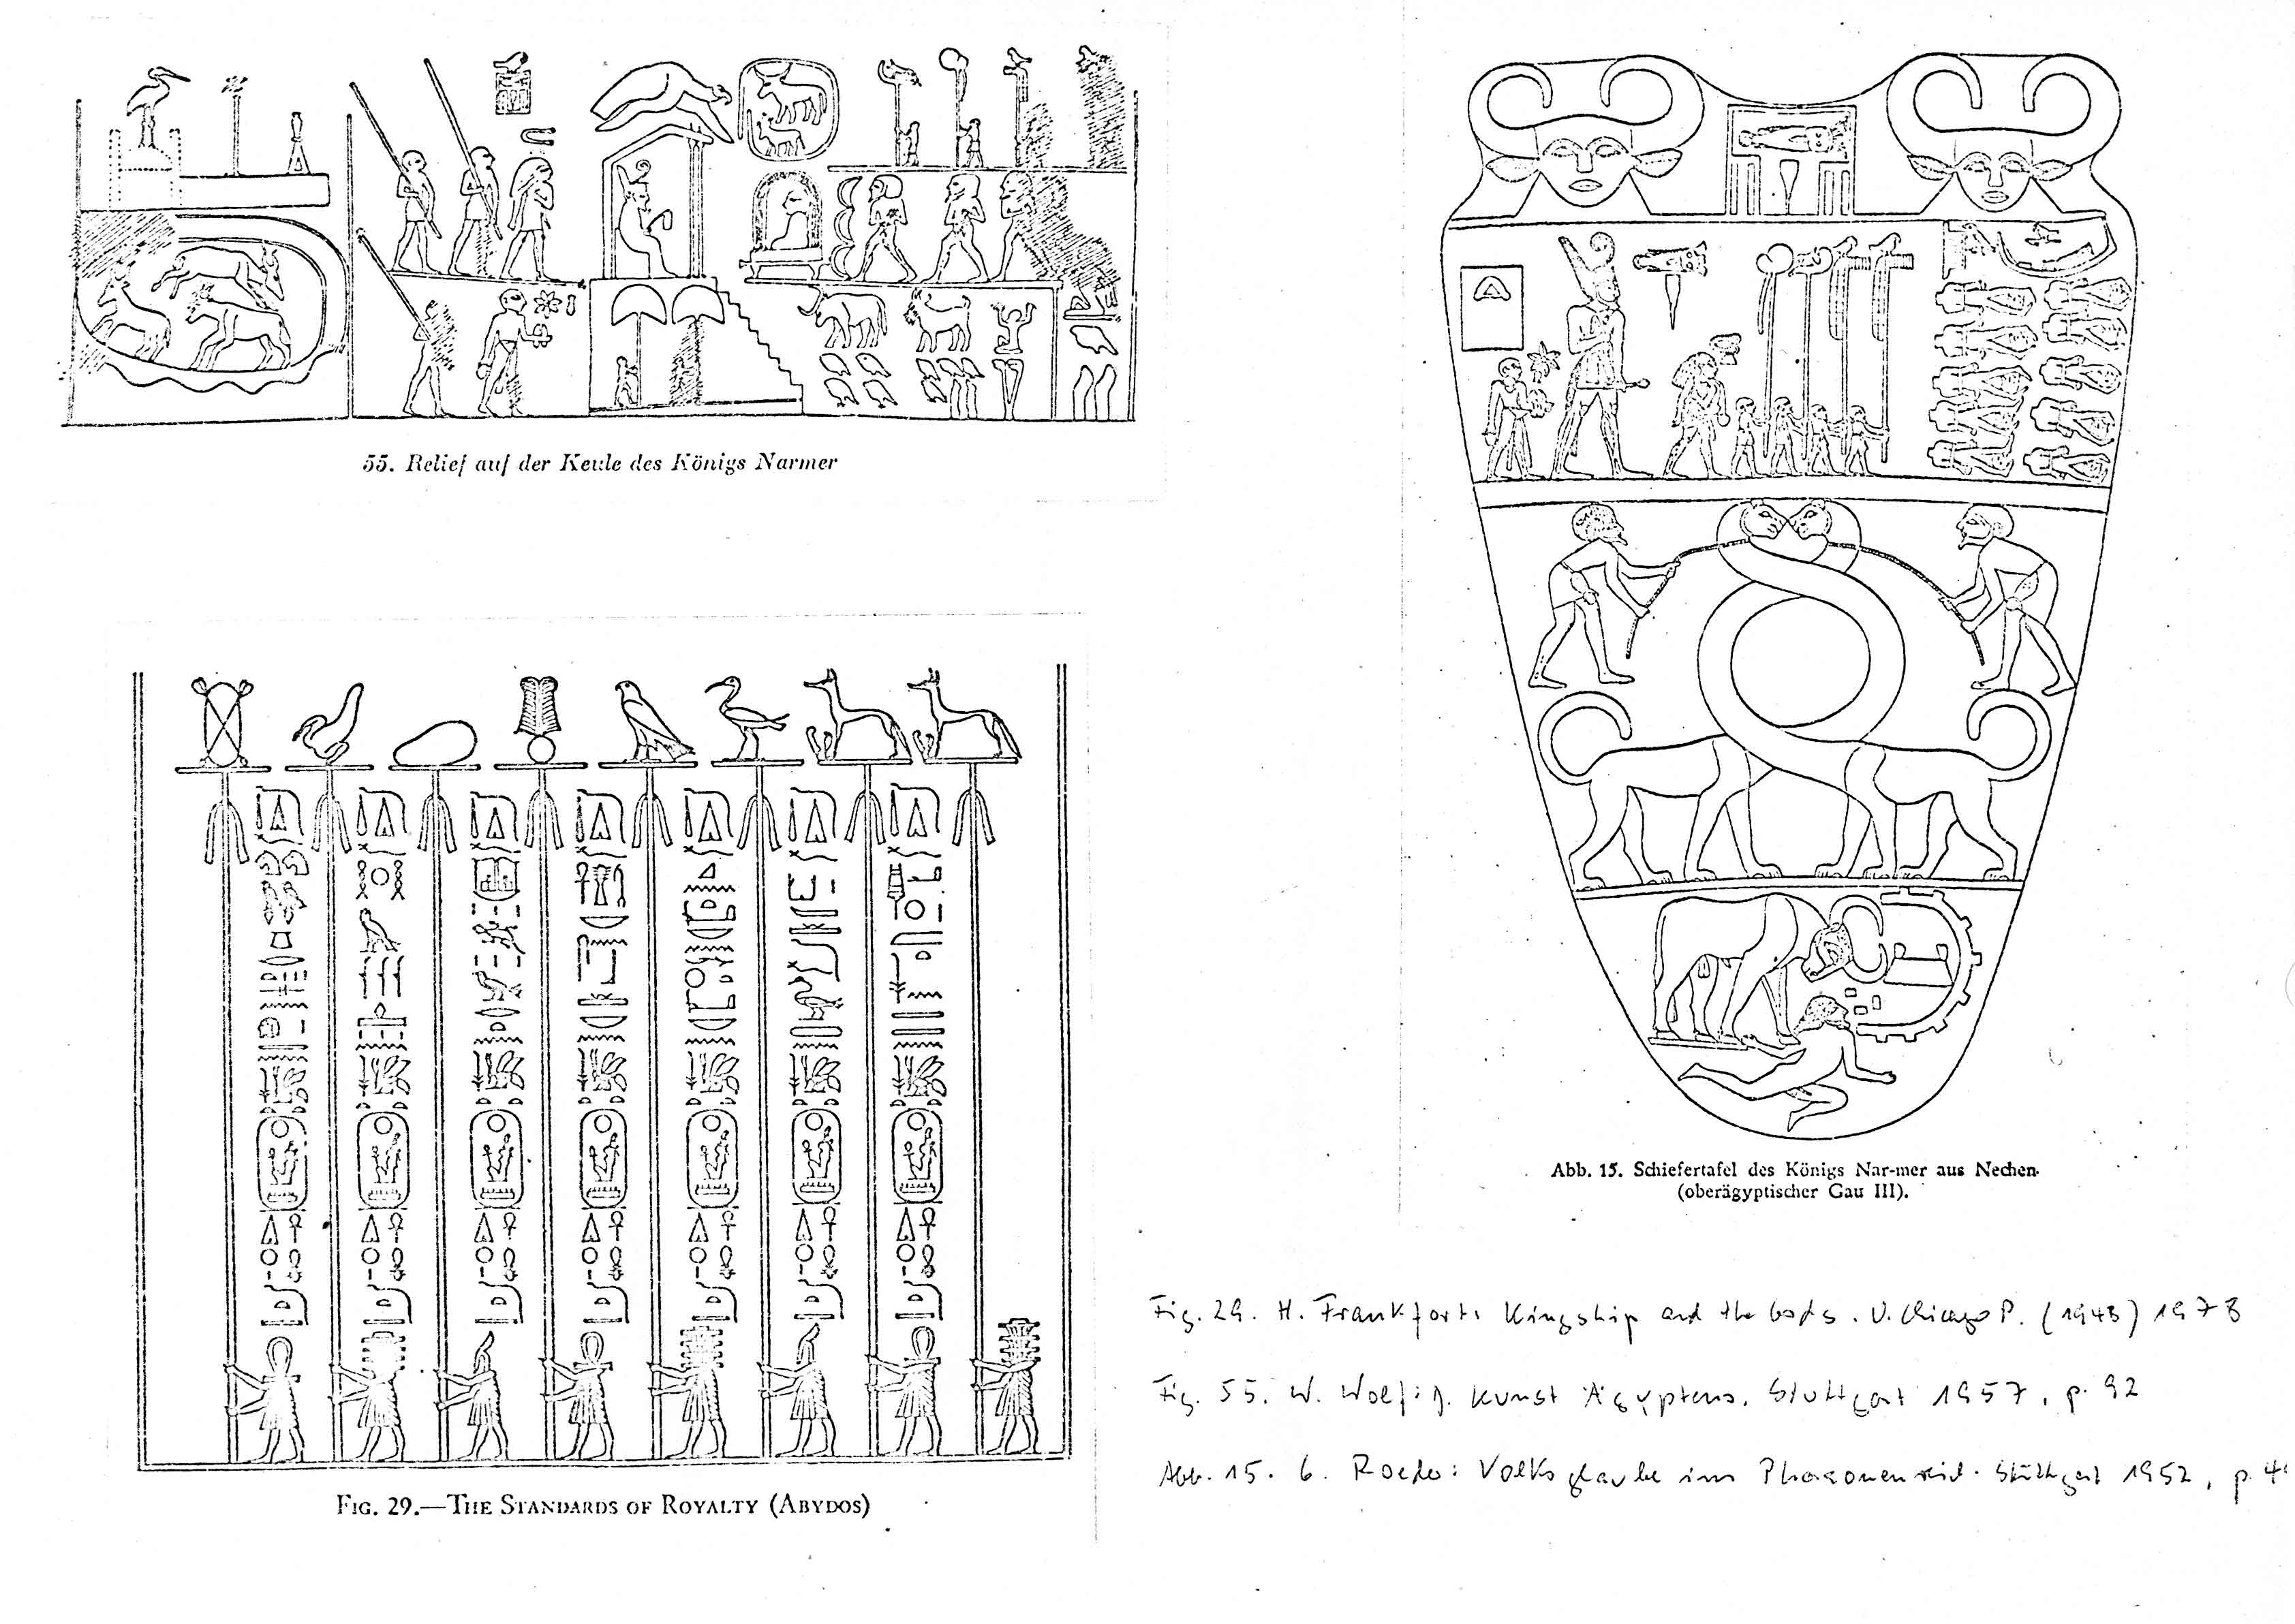 55. Relief auf der Keule des Königs Narmer
FIG. 29.—THE STANDARDS OF ROYALTY (ABYDOS)
Abb. 15. Schiefertafel des Königs Nar-mer aus Nechen
(oberägyptischer Gau III).
Fig. 29. H. Frankfort: Kingship and the Gods. U. Chicago P. (1948) 1978
Fig. 55. W. Wolf: Kunst Ägyptens. Stuttgart 1957, p. 92
Abb. 15. G. Roeder: Volksglaube im Pharaonenreich. Stuttgart 1952, p.